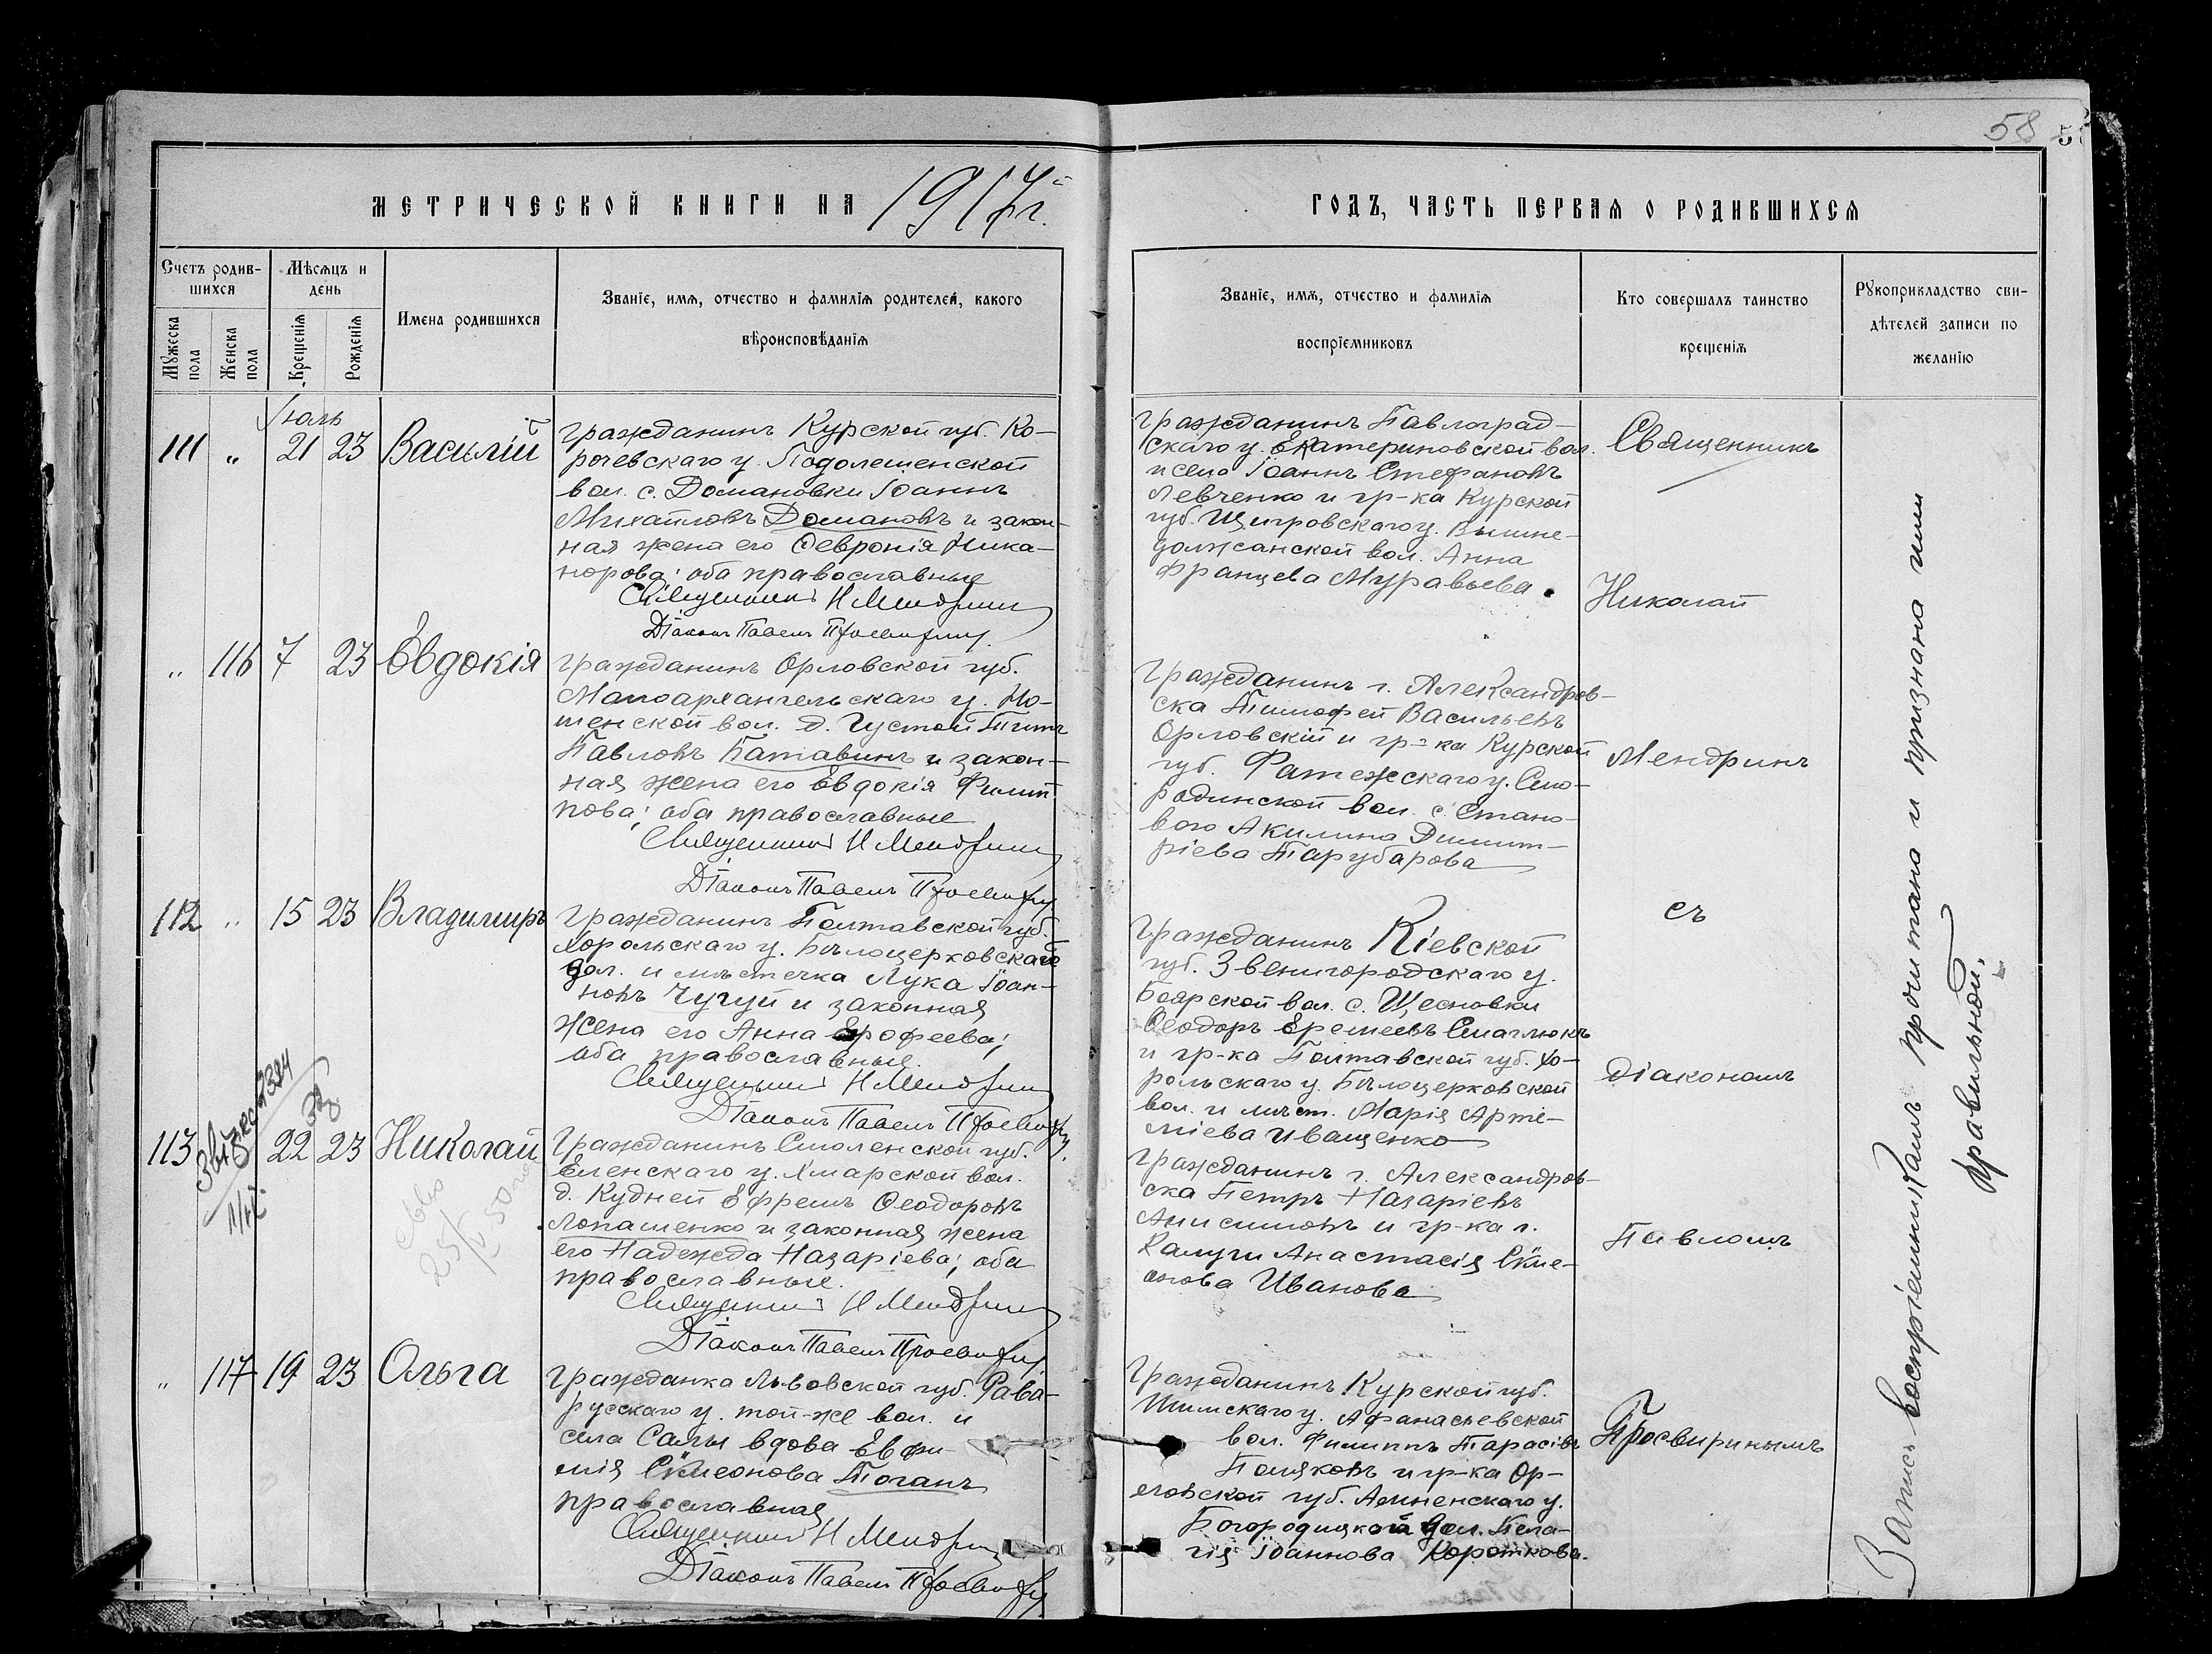 58
МЕТРИЧЕСКОЙ КНИГИ НА 1917 г.
ГОДЪ, ЧАСТЬ ПЕРВАЯ О РОДИВШИХСЯ
Счетъ родив-
шихся
Мужеска пола
Женска пола
Мѣсяцъ и
день
Крещенія
Рожденія
Имена родившихся
Званіе, имя, отчество и фамилія родителей, какого
вѣроисповѣданія
Званіе, имя, отчество и фамилія
воспріемниковъ
Кто совершалъ таинство
крещенія
Рукоприкладство сви-
дѣтелей записи по
желанію
Іюль
111 " 21 23 Василій
Гражданинъ Курской губ. Ко-
рочевскаго у. Подолешенской
вол. с. Домановки Іоаннъ
Михайловъ Домановъ и закон-
ная жена его Ѳевронія Ника-
норова; оба православные
Священникъ Н Мендринъ
Діаконъ Павелъ Просвиринъ
Гражданинъ Павлоград-
скаго у. Екатериновской вол.
и села Іоаннъ Стефановъ
Левченко и гр-ка Курской
губ. Щигровскаго у. Вышне-
должанской вол. Анна
Францева Муравьева.
" 116 7 23 Евдокія
Гражданинъ Орловской губ.
Малоархангельскаго у.
вол. д. Густой Титъ
Павловъ Батавинъ и закон-
ная жена его Евдокія Филип-
пова; оба православные
Священникъ Н Мендринъ
Діаконъ Павелъ Просвиринъ
Гражданинъ г. Александров-
ска Тимофей Васильевъ
Орловскій и гр-ка Курской
губ. Фатежскаго у. Смо-
родинской вол. с. Стано-
вого Акилина Димит-
ріева Тарубарова
112 " 15 23 Владимиръ
Гражданинъ Полтавской губ.
Хорольскаго у. Бѣлоцерковской
вол. и мѣстечка Лука Іоан-
новъ Чугуй и законная
жена его Анна Ерофеева;
оба православные.
Священникъ Н Мендринъ
Діаконъ Павелъ Просвиринъ
Гражданинъ Кіевской
губ. Звенигородскаго у.
Боярской вол. с. Щесновки
Ѳеодоръ Еремеевъ Смаглюкъ
и гр-ка Полтавской губ. Хо-
рольскаго у. Бѣлоцерковской
вол. и мѣст. Марія Арте-
міева Иващенко
113 22 23 Николай
Гражданинъ Смоленской губ.
Еленскаго у. Хмарской вол.
д. Кудней Ефремъ Ѳеодоровъ
Лопашенко и законная жена
его Надежда Назаріева; оба
православные.
Священникъ Н Мендринъ
Діаконъ Павелъ Просвиринъ
Гражданинъ г. Александров-
ска Петръ Назаріевъ
Анисимовъ и гр-ка г.
Калуги Анастасія Симе-
онова Иванова
" 117 19 23 Ольга
Гражданка Львовской губ. Рава-
русскаго у. той-же вол. и
села Салы вдова Евфи-
мія Симеонова Тоганъ
православная
Священникъ Н Мендринъ
Діаконъ Павелъ Просвиринъ
Гражданинъ Курской губ.
Тимскаго у. Афанасьевской
вол. Филиппъ Тарасіевъ
Поляковъ и гр-ка Ор-
ловской губ. Ливненскаго у.
Богородицкой вол. Пела-
гія Іоаннова Короткова.
Священникъ
Николай
Мендринъ
съ
діакономъ
Павломъ
Просвиринымъ
Запись воспріемникамъ прочитана и признана ими
правильной.